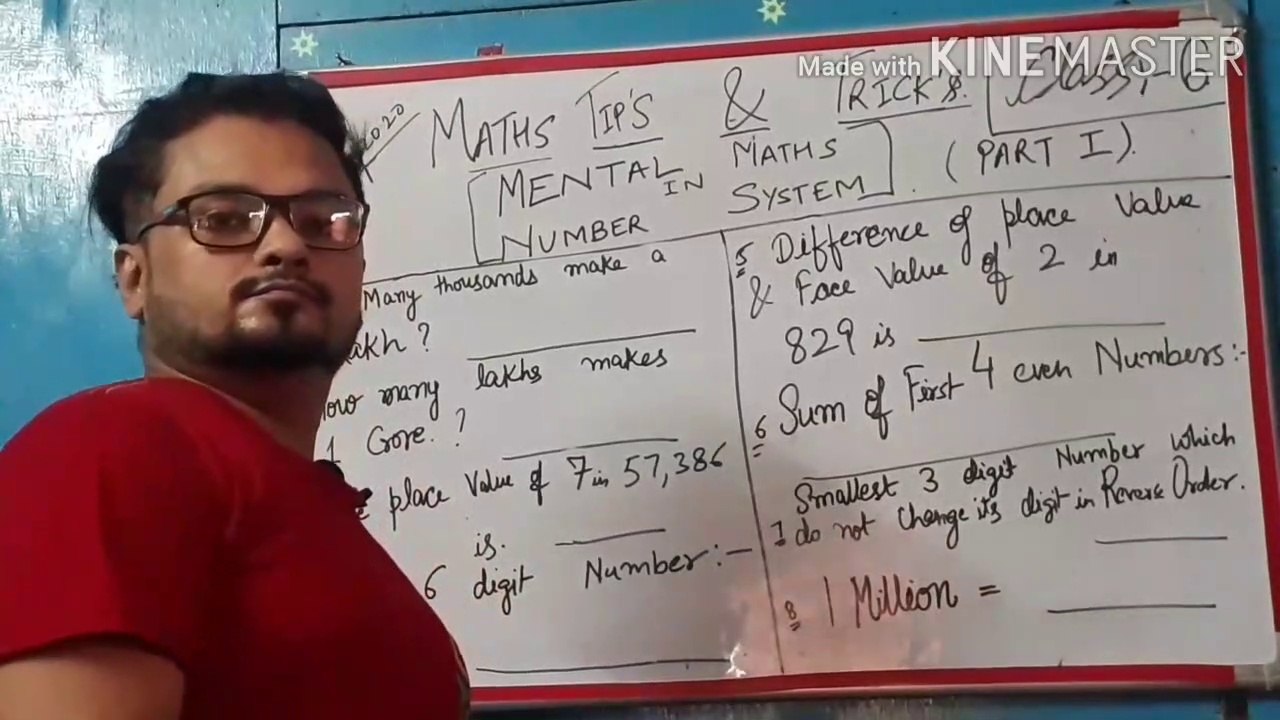 Made with KINEMASTER
2020
MATHS TIP'S & TRICK'S. Class:- 6
[MENTAL MATHS
IN
NUMBER SYSTEM]. (PART I).
Many thousands make a
lakh? ____
How many lakhs makes
1 Crore. ? ____
place Value of 7 in 57,386
is. ____
6 digit Number:-
____
5 Difference of place Value
& Face Value of 2 in
829 is ____
6 Sum of First 4 even Numbers:-
____
Smallest 3 digit Number which
7 do not Change its digit in Reverse Order.
____
8 1 Million = ____